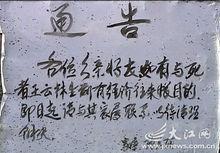 通告
各位乡亲好友如有与死
者王云林生前有经济往来账目的
即日起请与其家属联系，以待清理
解决
大江网
www.jxnews.com.cn